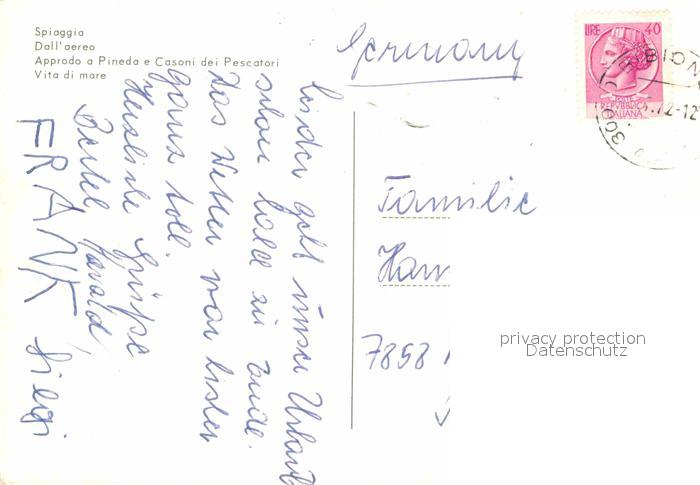 Spiaggia
Dall'aereo
Approdo a Pineda e Casoni dei Pescatori
Vita di mare
Leider geht unser Urlaub
schon bald zu Ende.
Das Wetter war bisher
ganz toll.
Herzliche Grüsse
Bertel, Harald,
FRANK Siegi
Germany
LIRE 40
POSTE
REPVBBLICA
ITALIANA
BIONE
72-12
Familie
Han
7858
privacy protection
Datenschutz